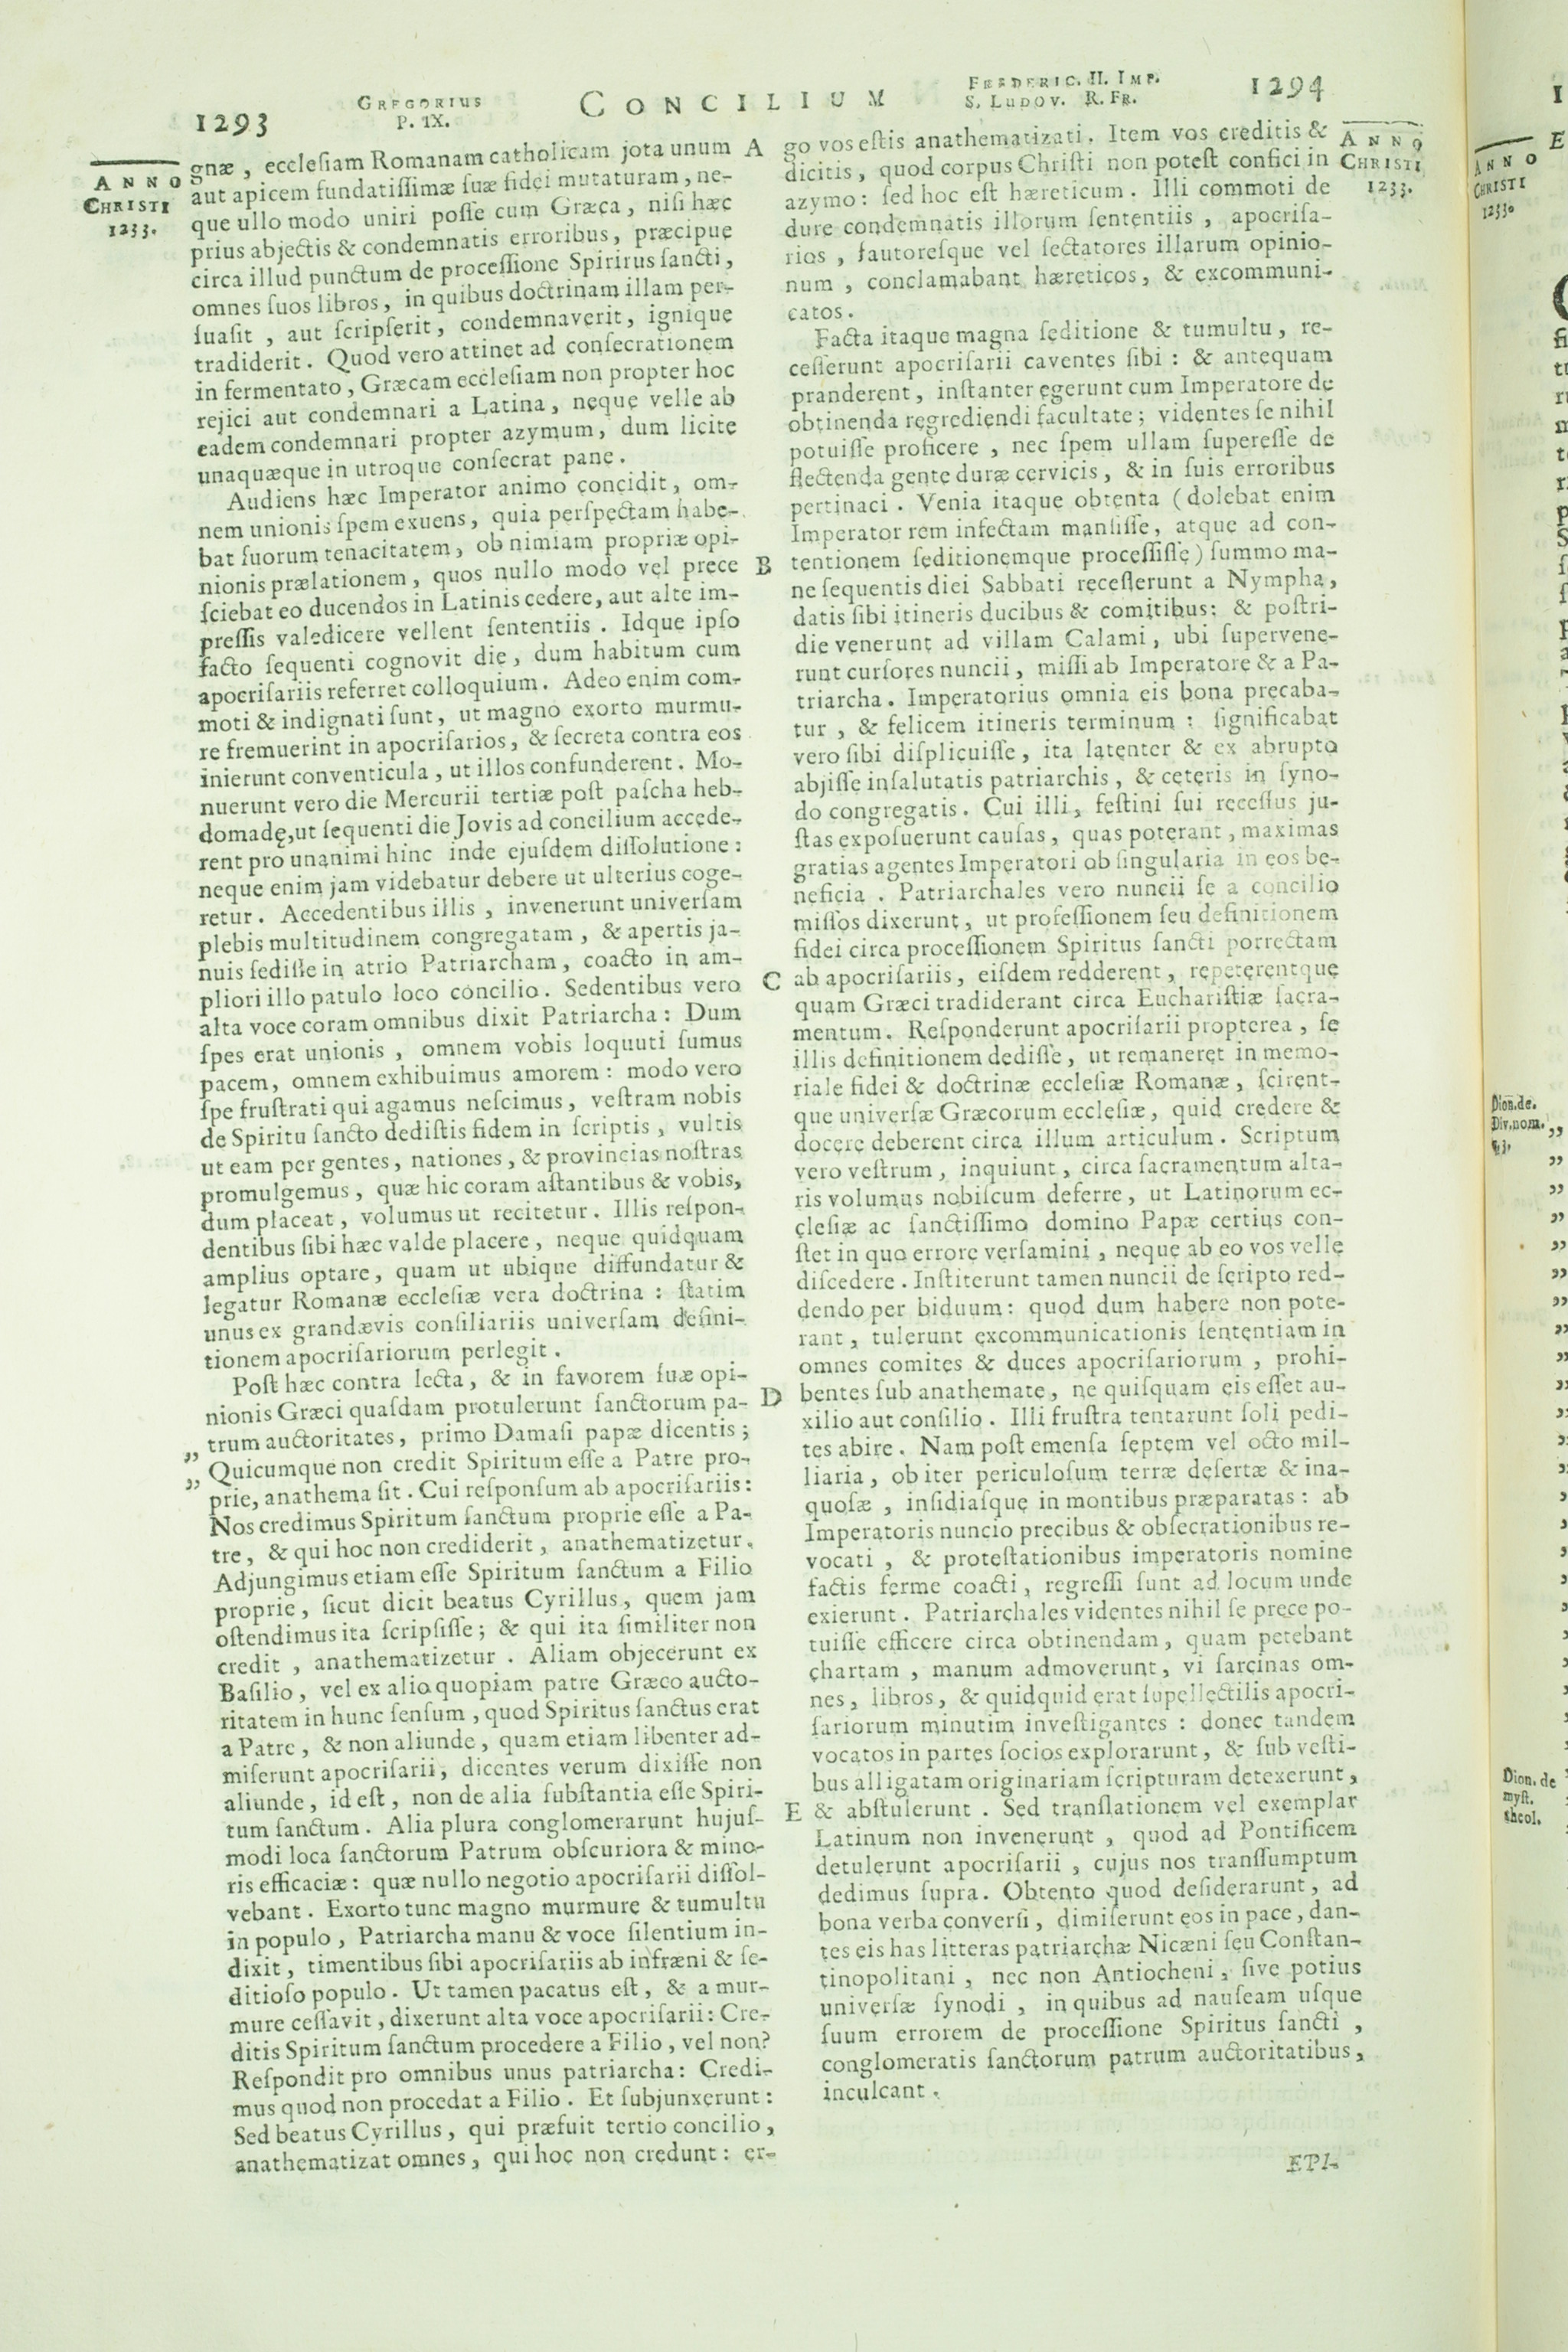 1293
GREGORIUS
P. IX.
CONCILIUM
FREDERIC. II. IMP.
S. LUDOV. R. FR.
1294
ANNO
CHRISTI
1233.
gnæ, ecclesiam Romanam catholicam jota unum
aut apicem fundatissimæ suæ fidei mutaturam, ne-
que ullo modo uniri posse cum Græca, nisi hæc
prius abjectis & condemnatis erroribus, præcipue
circa illud punctum de processione Spirirus sancti,
omnes suos libros, in quibus doctrinam illam per-
suasit, aut scripserit, condemnaverit, ignique
tradiderit. Quod vero attinet ad consecrationem
in fermentato, Græcam ecclesiam non propter hoc
rejici aut condemnari a Latina, neque velle ab
eadem condemnari propter azymum, dum licite
unaquæque in utroque consecrat pane.
Audiens hæc Imperator animo concidit, om-
nem unionis spem exuens, quia perspectam habe-
bat suorum tenacitatem, ob nimiam propriæ opi-
nionis prælationem, quos nullo modo vel prece
sciebat eo ducendos in Latinis cedere, aut alte im-
pressis valedicere vellent sententiis. Idque ipso
facto sequenti cognovit die, dum habitum cum
apocrisariis referret colloquium. Adeo enim com-
moti & indignati sunt, ut magno exorto murmu-
re fremuerint in apocrisarios, & secreta contra eos
inierunt conventicula, ut illos confunderent. Mo-
nuerunt vero die Mercurii tertiæ post pascha heb-
domadę, ut sequenti die Jovis ad concilium accede-
rent pro unanimi hinc inde ejusdem dissolutione:
neque enim jam videbatur debere ut ulterius coge-
retur. Accedentibus illis, invenerunt universam
plebis multitudinem congregatam, & apertis ja-
nuis sedisse in atrio Patriarcham, coacto in am-
pliori illo patulo loco concilio. Sedentibus vero
alta voce coram omnibus dixit Patriarcha: Dum
spes erat unionis, omnem vobis loquuti sumus
pacem, omnem exhibuimus amorem: modo vero
spe frustrati qui agamus nescimus, vestram nobis
de Spiritu sancto dedistis fidem in scriptis, vultis
ut eam per gentes, nationes, & provincias nostras
promulgemus, quæ hic coram astantibus & vobis,
dum placeat, volumus ut recitetur. Illis respon-
dentibus sibi hæc valde placere, neque quidquam
amplius optare, quam ut ubique diffundatur &
legatur Romanæ ecclesiæ vera doctrina: statim
unus ex grandævis consiliariis universam defini-
tionem apocrisariorum perlegit.
Post hæc contra lecta, & in favorem suæ opi-
nionis Græci quasdam protulerunt sanctorum pa-
trum auctoritates, primo Damasi papæ dicentis;
„ Quicumque non credit Spiritum esse a Patre pro-
„ prie, anathema sit. Cui responsum ab apocrisariis:
Nos credimus Spiritum sanctum proprie esse a Pa-
tre, & qui hoc non crediderit, anathematizetur.
Adjungimus etiam esse Spiritum sanctum a Filio
proprie, sicut dicit beatus Cyrillus, quem jam
ostendimus ita scripsisse; & qui ita similiter non
credit, anathematizetur. Aliam objecerunt ex
Basilio, vel ex alio quopiam patre Græco aucto-
ritatem in hunc sensum, quod Spiritus sanctus erat
a Patre, & non aliunde, quam etiam libenter ad-
miserunt apocrisarii, dicentes verum dixisse non
aliunde, id est, non de alia substantia esse Spiri-
tum sanctum. Alia plura conglomerarunt hujus-
modi loca sanctorum Patrum obscuriora & mino-
ris efficaciæ: quæ nullo negotio apocrisarii dissol-
vebant. Exorto tunc magno murmure & tumultu
in populo, Patriarcha manu & voce silentium in-
dixit, timentibus sibi apocrisariis ab infræni & se-
ditioso populo. Ut tamen pacatus est, & a mur-
mure cessavit, dixerunt alta voce apocrisarii: Cre-
ditis Spiritum sanctum procedere a Filio, vel non?
Respondit pro omnibus unus patriarcha: Credi-
mus quod non procedat a Filio. Et subjunxerunt:
Sed beatus Cyrillus, qui præfuit tertio concilio,
anathematizat omnes, qui hoc non credunt: er-
A
B
C
D
E
go vos estis anathematizati. Item vos creditis &
dicitis, quod corpus Christi non potest confici in
azymo: sed hoc est hæreticum. Illi commoti de
dure condemnatis illorum sententiis, apocrisa-
rios, fautoresque vel sectatores illarum opinio-
num, conclamabant hæreticos, & excommuni-
catos.
Facta itaque magna seditione & tumultu, re-
cesserunt apocrisarii caventes sibi: & antequam
pranderent, instanter egerunt cum Imperatore de
obtinenda regrediendi facultate; videntes se nihil
potuisse proficere, nec spem ullam superesse de
flectenda gente duræ cervicis, & in suis erroribus
pertinaci. Venia itaque obtenta (dolebat enim
Imperator rem infectam mansisse, atque ad con-
tentionem seditionemque processisse) summo ma-
ne sequentis diei Sabbati recesserunt a Nympha,
datis sibi itineris ducibus & comitibus: & postri-
die venerunt ad villam Calami, ubi supervene-
runt cursores nuncii, missi ab Imperatore & a Pa-
triarcha. Imperatorius omnia eis bona precaba-
tur, & felicem itineris terminum: significabat
vero sibi displicuisse, ita latenter & ex abrupto
abjisse insalutatis patriarchis, & ceteris in syno-
do congregatis. Cui illi, festini sui recessus ju-
stas exposuerunt causas, quas poterant, maximas
gratias agentes Imperatori ob singularia in eos be-
neficia. Patriarchales vero nuncii se a concilio
missos dixerunt, ut professionem seu definitionem
fidei circa processionem Spiritus sancti porrectam
ab apocrisariis, eisdem redderent, repeterentque
quam Græci tradiderant circa Eucharistiæ sacra-
mentum. Responderunt apocrisarii propterea, se
illis definitionem dedisse, ut remaneret in memo-
riale fidei & doctrinæ ecclesiæ Romanæ, scirent-
que universæ Græcorum ecclesiæ, quid credere &
docere deberent circa illum articulum. Scriptum
vero vestrum, inquiunt, circa sacramentum alta-
ris volumus nobiscum deferre, ut Latinorum ec-
clesiæ ac sanctissimo domino Papæ certius con-
stet in quo errore versamini, neque ab eo vos velle
discedere. Institerunt tamen nuncii de scripto red-
dendo per biduum: quod dum habere non pote-
rant, tulerunt excommunicationis sententiam in
omnes comites & duces apocrisariorum, prohi-
bentes sub anathemate, ne quisquam eis esset au-
xilio aut consilio. Illi frustra tentarunt soli pedi-
tes abire. Nam post emensa septem vel octo mil-
liaria, ob iter periculosum terræ desertæ & ina-
quosæ, insidiasque in montibus præparatas: ab
Imperatoris nuncio precibus & obsecrationibus re-
vocati, & protestationibus imperatoris nomine
factis ferme coacti, regressi sunt ad locum unde
exierunt. Patriarchales videntes nihil se prece po-
tuisse efficere circa obtinendam, quam petebant
chartam, manum admoverunt, vi sarcinas om-
nes, libros, & quidquid erat supellectilis apocri-
sariorum minutim investigantes: donec tandem
vocatos in partes socios explorarunt, & sub vesti-
bus alligatam originariam scripturam detexerunt,
& abstulerunt. Sed translationem vel exemplar
Latinum non invenerunt, quod ad Pontificem
detulerunt apocrisarii, cujus nos transsumptum
dedimus supra. Obtento quod desiderarunt, ad
bona verba conversi, dimiserunt eos in pace, dan-
tes eis has litteras patriarchæ Nicæni seu Constan-
tinopolitani, nec non Antiocheni, sive potius
universæ synodi, in quibus ad nauseam usque
suum errorem de processione Spiritus sancti,
conglomeratis sanctorum patrum auctoritatibus,
inculcant.
EPI-
ANNO
CHRISTI
1233.
ANNO
CHRISTI
1233.
Dion. de.
Div. nom.
Dion. de
myst.
theol.